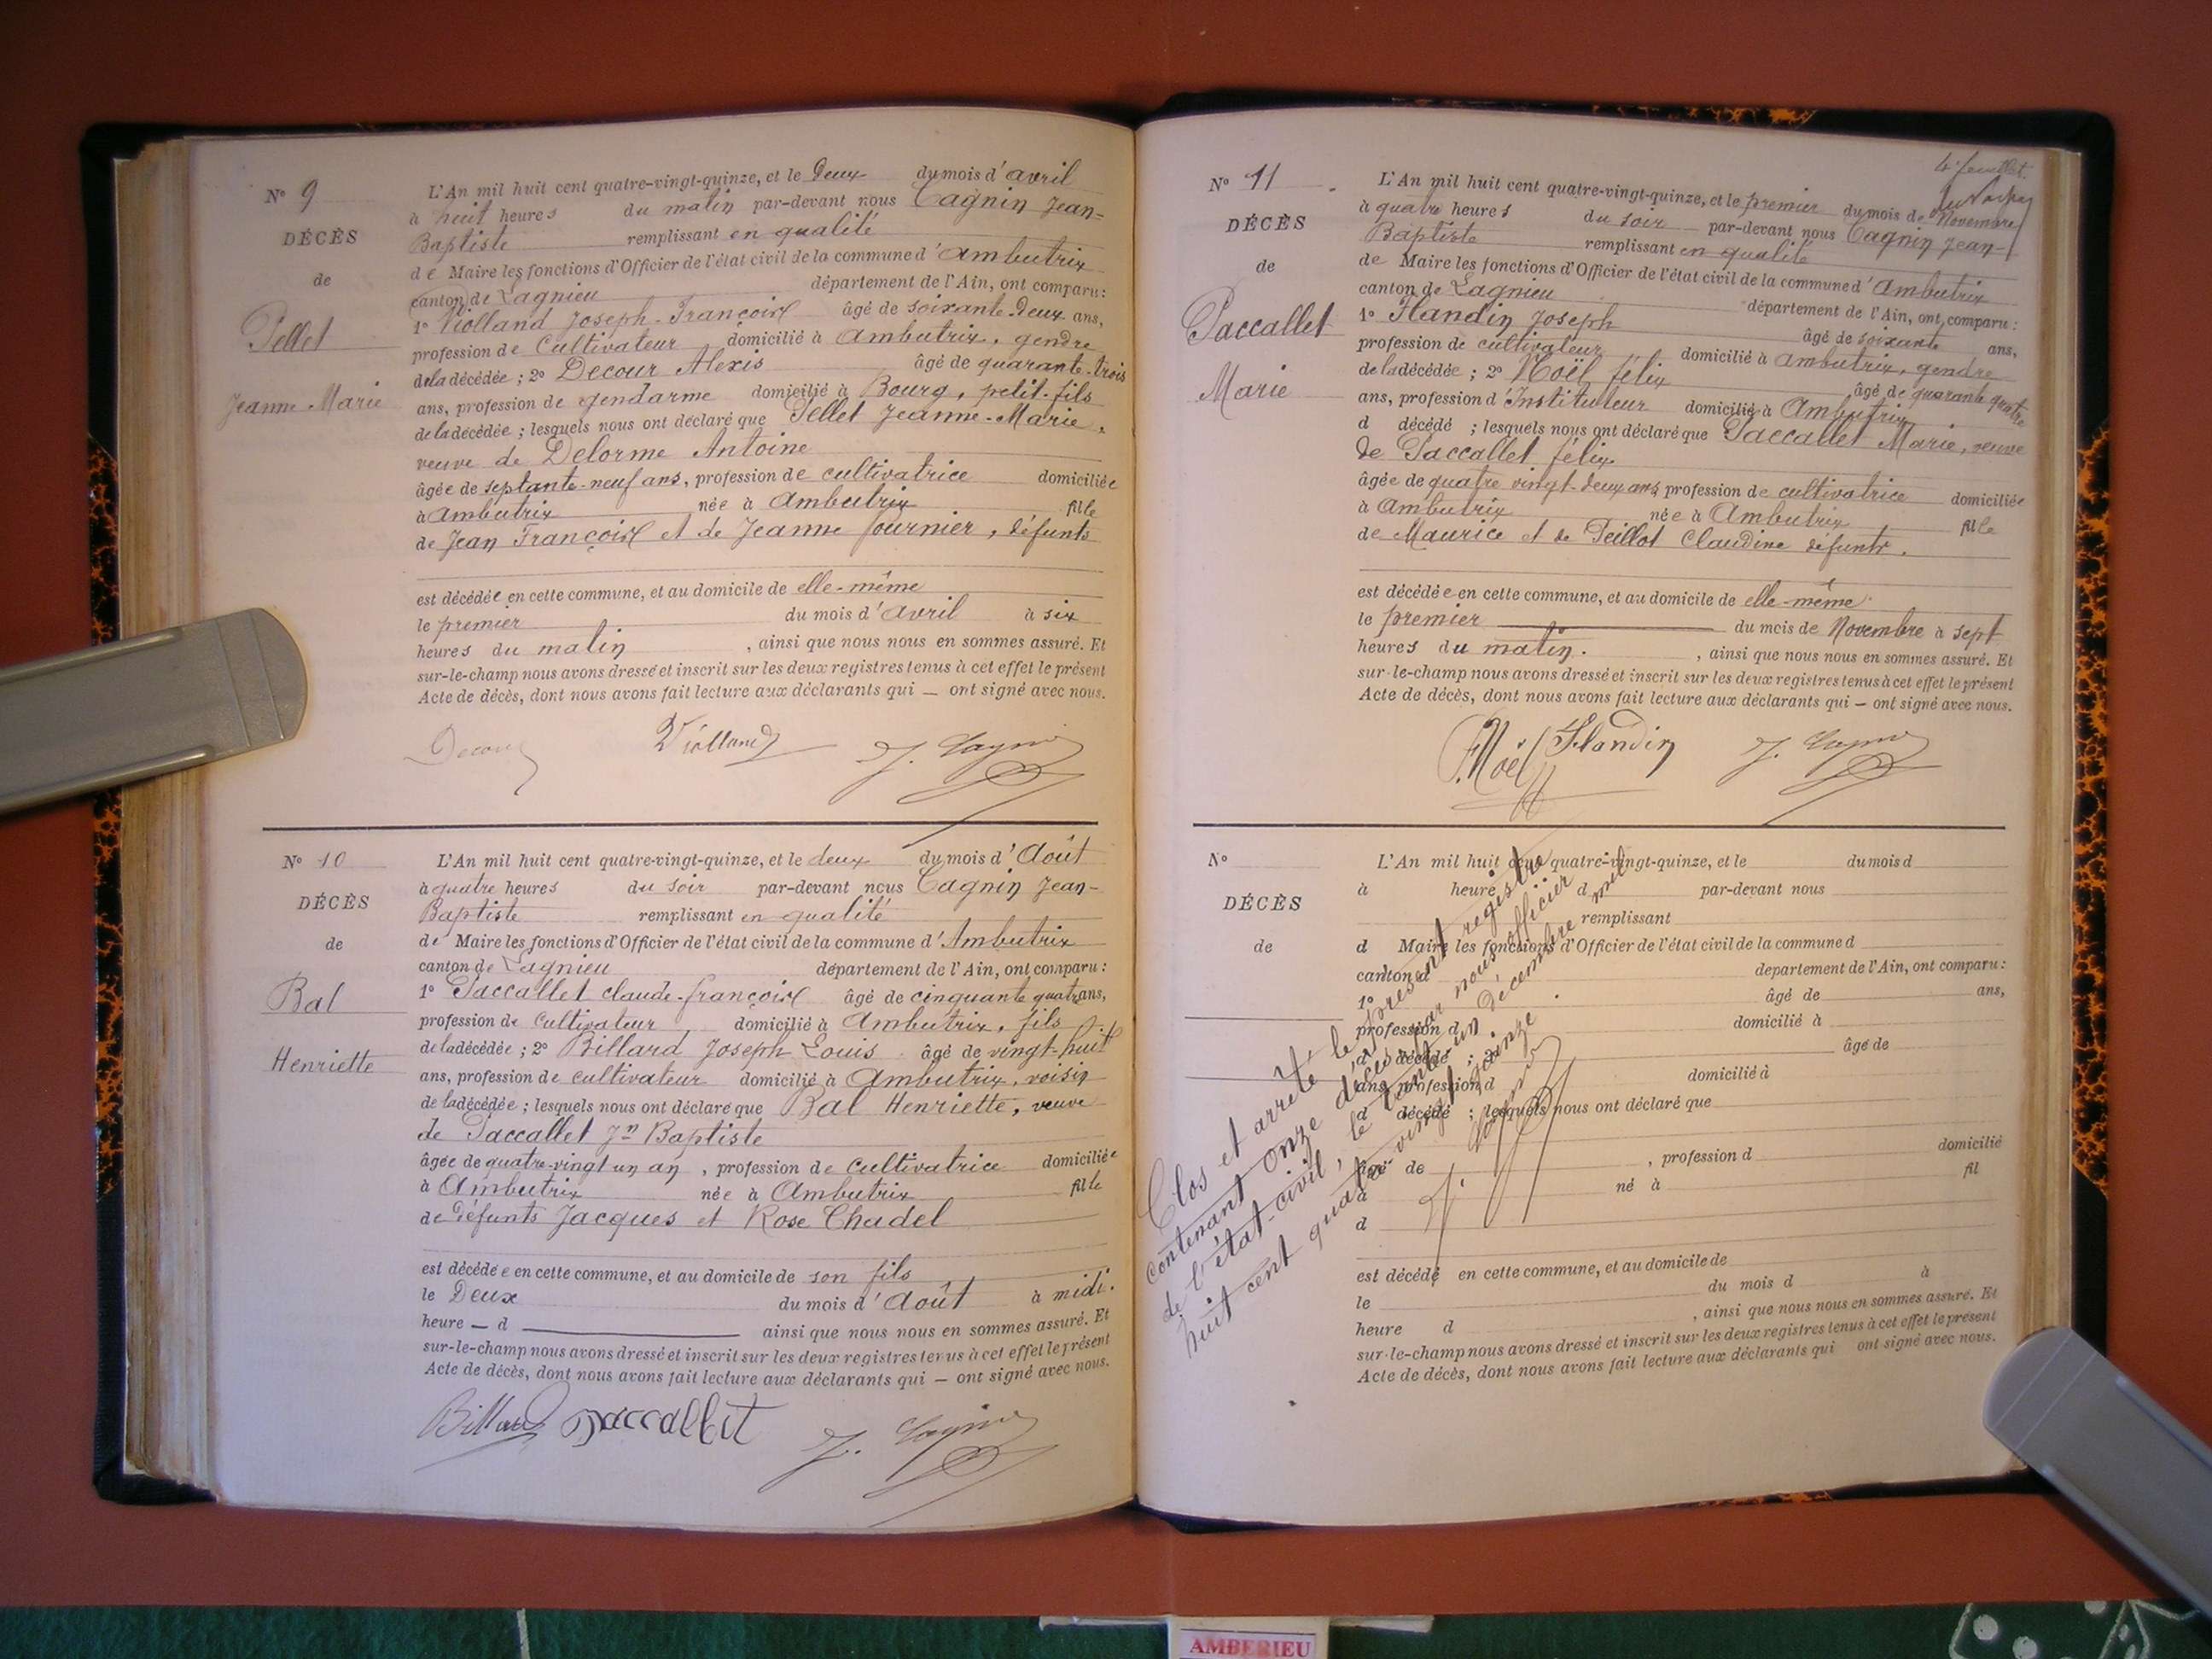 N° 9
DÉCÈS
de
Pellet
Jeanne Marie
L'An mil huit cent quatre-vingt-quinze, et le Deux du mois d'avril
à huit heures du matin par-devant nous Cagnin Jean-
Baptiste remplissant en qualité
de Maire les fonctions d'Officier de l'état civil de la commune d'Ambutrix
canton de Lagnieu département de l'Ain, ont comparu:
1° Violland Joseph-François âgé de soixante-deux ans,
profession de Cultivateur domicilié à Ambutrix, gendre
de la décédée; 2° Decour Alexis âgé de quarante-trois
ans, profession de gendarme domicilié à Bourg, petit-fils
de la décédée; lesquels nous ont déclaré que Pellet Jeanne-Marie,
veuve de Delorme Antoine
âgée de septante-neuf ans, profession de cultivatrice domiciliée
à Ambutrix née à Ambutrix fille
de Jean François et de Jeanne Fournier, défunts
est décédée en cette commune, et au domicile de elle-même
le premier du mois d'avril à six
heures du matin, ainsi que nous nous en sommes assuré. Et
sur-le-champ nous avons dressé et inscrit sur les deux registres tenus à cet effet le présent
Acte de décès, dont nous avons fait lecture aux déclarants qui — ont signé avec nous.
Decour Violland J. Cagnin
N° 10
DÉCÈS
de
Bal
Henriette
L'An mil huit cent quatre-vingt-quinze, et le deux du mois d'Août
à quatre heures du soir par-devant nous Cagnin Jean-
Baptiste remplissant en qualité
de Maire les fonctions d'Officier de l'état civil de la commune d'Ambutrix
canton de Lagnieu département de l'Ain, ont comparu:
1° Paccallet claude-françois âgé de cinquante quatre ans,
profession de Cultivateur, domicilié à Ambutrix, fils
de la décédée; 2° Billard Joseph Louis âgé de vingt-huit
ans, profession de cultivateur domicilié à Ambutrix, voisin
de la décédée; lesquels nous ont déclaré que Bal Henriette, veuve
de Paccallet Jn Baptiste
âgée de quatre-vingt un an, profession de Cultivatrice domiciliée
à Ambutrix née à Ambutrix fille
de défunts Jacques et Rose Chadel
est décédée en cette commune, et au domicile de son fils
le Deux du mois d'Août à midi.
heure — d — ainsi que nous nous en sommes assuré. Et
sur-le-champ nous avons dressé et inscrit sur les deux registres tenus à cet effet le présent
Acte de décès, dont nous avons fait lecture aux déclarants qui — ont signé avec nous.
Billard Paccallet J. Cagnin
4e feuillet.
N° 11
DÉCÈS
de
Paccallet
Marie
L'An mil huit cent quatre-vingt-quinze, et le premier du mois de Novembre
à quatre heures du soir par-devant nous Cagnin Jean-
Baptiste remplissant en qualité
de Maire les fonctions d'Officier de l'état civil de la commune d'Ambutrix
canton de Lagnieu département de l'Ain, ont comparu:
1° Flandin Joseph âgé de soixante ans,
profession de cultivateur domicilié à Ambutrix, gendre
de la décédée; 2° Noël félix âgé de quarante quatre
ans, profession d'Instituteur domicilié à Ambutrix
d décédé; lesquels nous ont déclaré que Paccallet Marie, veuve
de Paccallet félix
âgée de quatre vingt-deux ans, profession de cultivatrice domiciliée
à Ambutrix née à Ambutrix fille
de Maurice et de Peillot Claudine défunts.
est décédée en cette commune, et au domicile de elle-même
le premier du mois de Novembre à sept
heures du matin., ainsi que nous nous en sommes assuré. Et
sur-le-champ nous avons dressé et inscrit sur les deux registres tenus à cet effet le présent
Acte de décès, dont nous avons fait lecture aux déclarants qui — ont signé avec nous.
F. Noël Flandin J. Cagnin
N°
DÉCÈS
de
L'An mil huit cent quatre-vingt-quinze, et le du mois d
à heure d par-devant nous
remplissant
d Maire les fonctions d'Officier de l'état civil de la commune d
canton d département de l'Ain, ont comparu:
1° âgé de ans,
profession d domicilié à
d décédé; 2° âgé de
ans, profession d domicilié à
d décédé; lesquels nous ont déclaré que
âgé de, profession d domicilié
à né à fil
d
est décédé en cette commune, et au domicile de
le du mois d à
heure d, ainsi que nous nous en sommes assuré. Et
sur-le-champ nous avons dressé et inscrit sur les deux registres tenus à cet effet le présent
Acte de décès, dont nous avons fait lecture aux déclarants qui ont signé avec nous.
Clos et arrêté le présent registre
contenant onze décès, par nous officier
de l'état-civil, le trente-un décembre mil
huit cent quatre vingt quinze
J. Cagnin
AMBERIEU